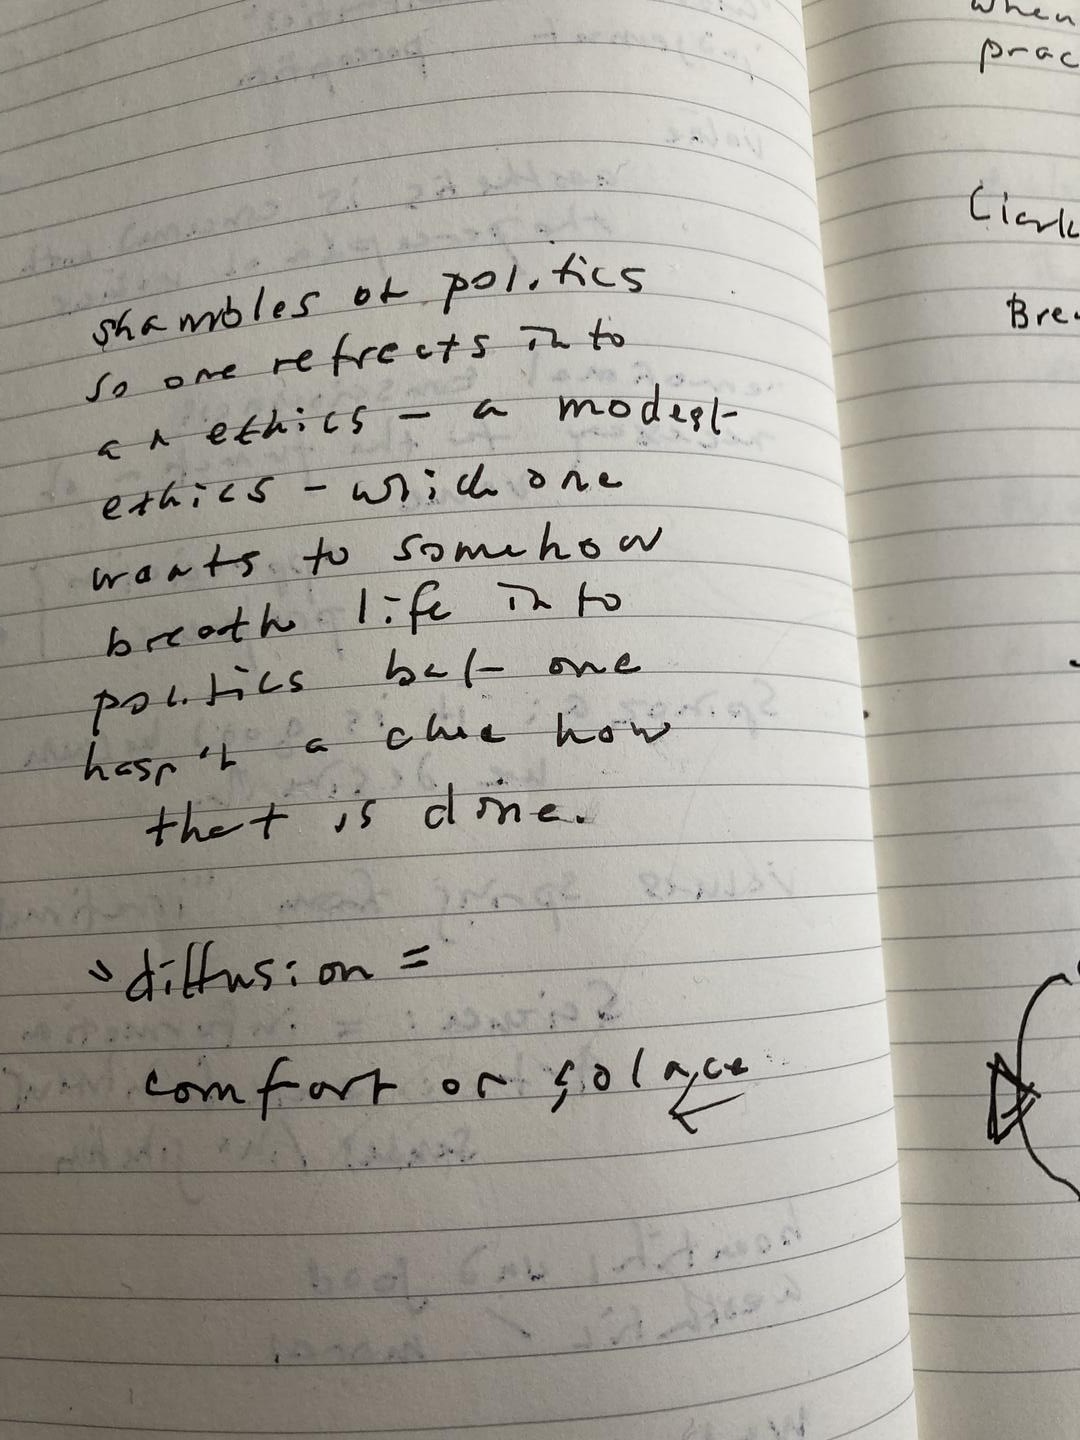 shambles of politics
so one refracts into
an ethics – a modest
ethics – which one
wants to somehow
breath life into
politics but one
hasn't a clue how
that is done.
diffusion =
comfort or solace
when
prac
Clark
Bre